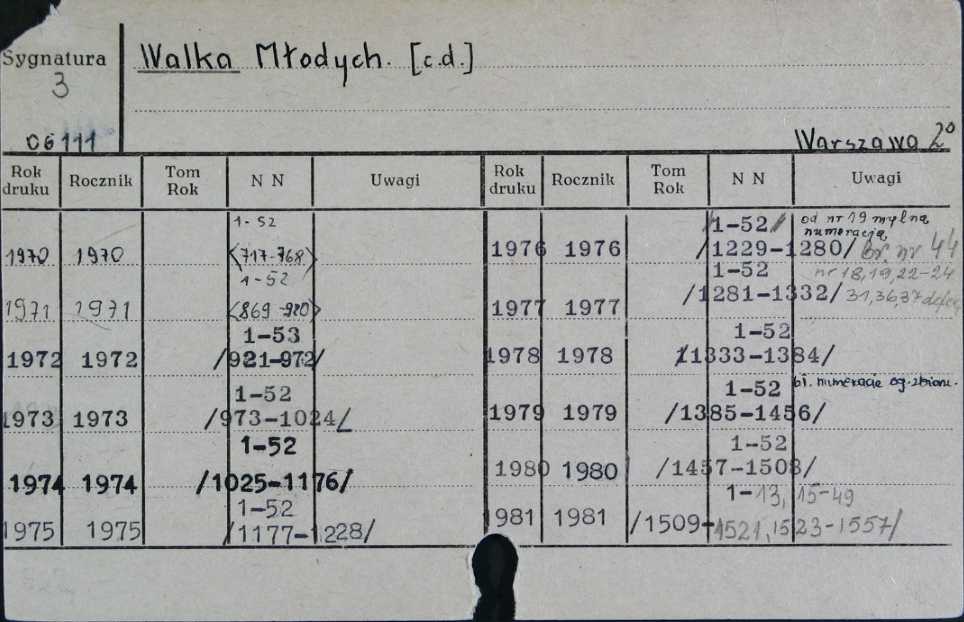 Sygnatura
3
06111
Walka Młodych. [c.d.]
Warszawa 2°
Rok druku Rocznik Tom Rok N N Uwagi
1970 1970 1-52 <717-768>
1971 1971 1-52 <869-920>
1972 1972 1-53 /921-972/
1973 1973 1-52 /973-1024/
1974 1974 1-52 /1025-1176/
1975 1975 1-52 /1177-1228/
Rok druku Rocznik Tom Rok N N Uwagi
1976 1976 /1-52/ /1229-1280/ od nr 19 mylna numeracja br. nr 44
1977 1977 1-52 /1281-1332/ nr 18,19,22-24 31,36,37
1978 1978 1-52 /1333-1384/
1979 1979 1-52 /1385-1456/ numeracje
1980 1980 1-52 /1457-1508/
1981 1981 1-13, 15-49 /1509-1521, 1523-1557/